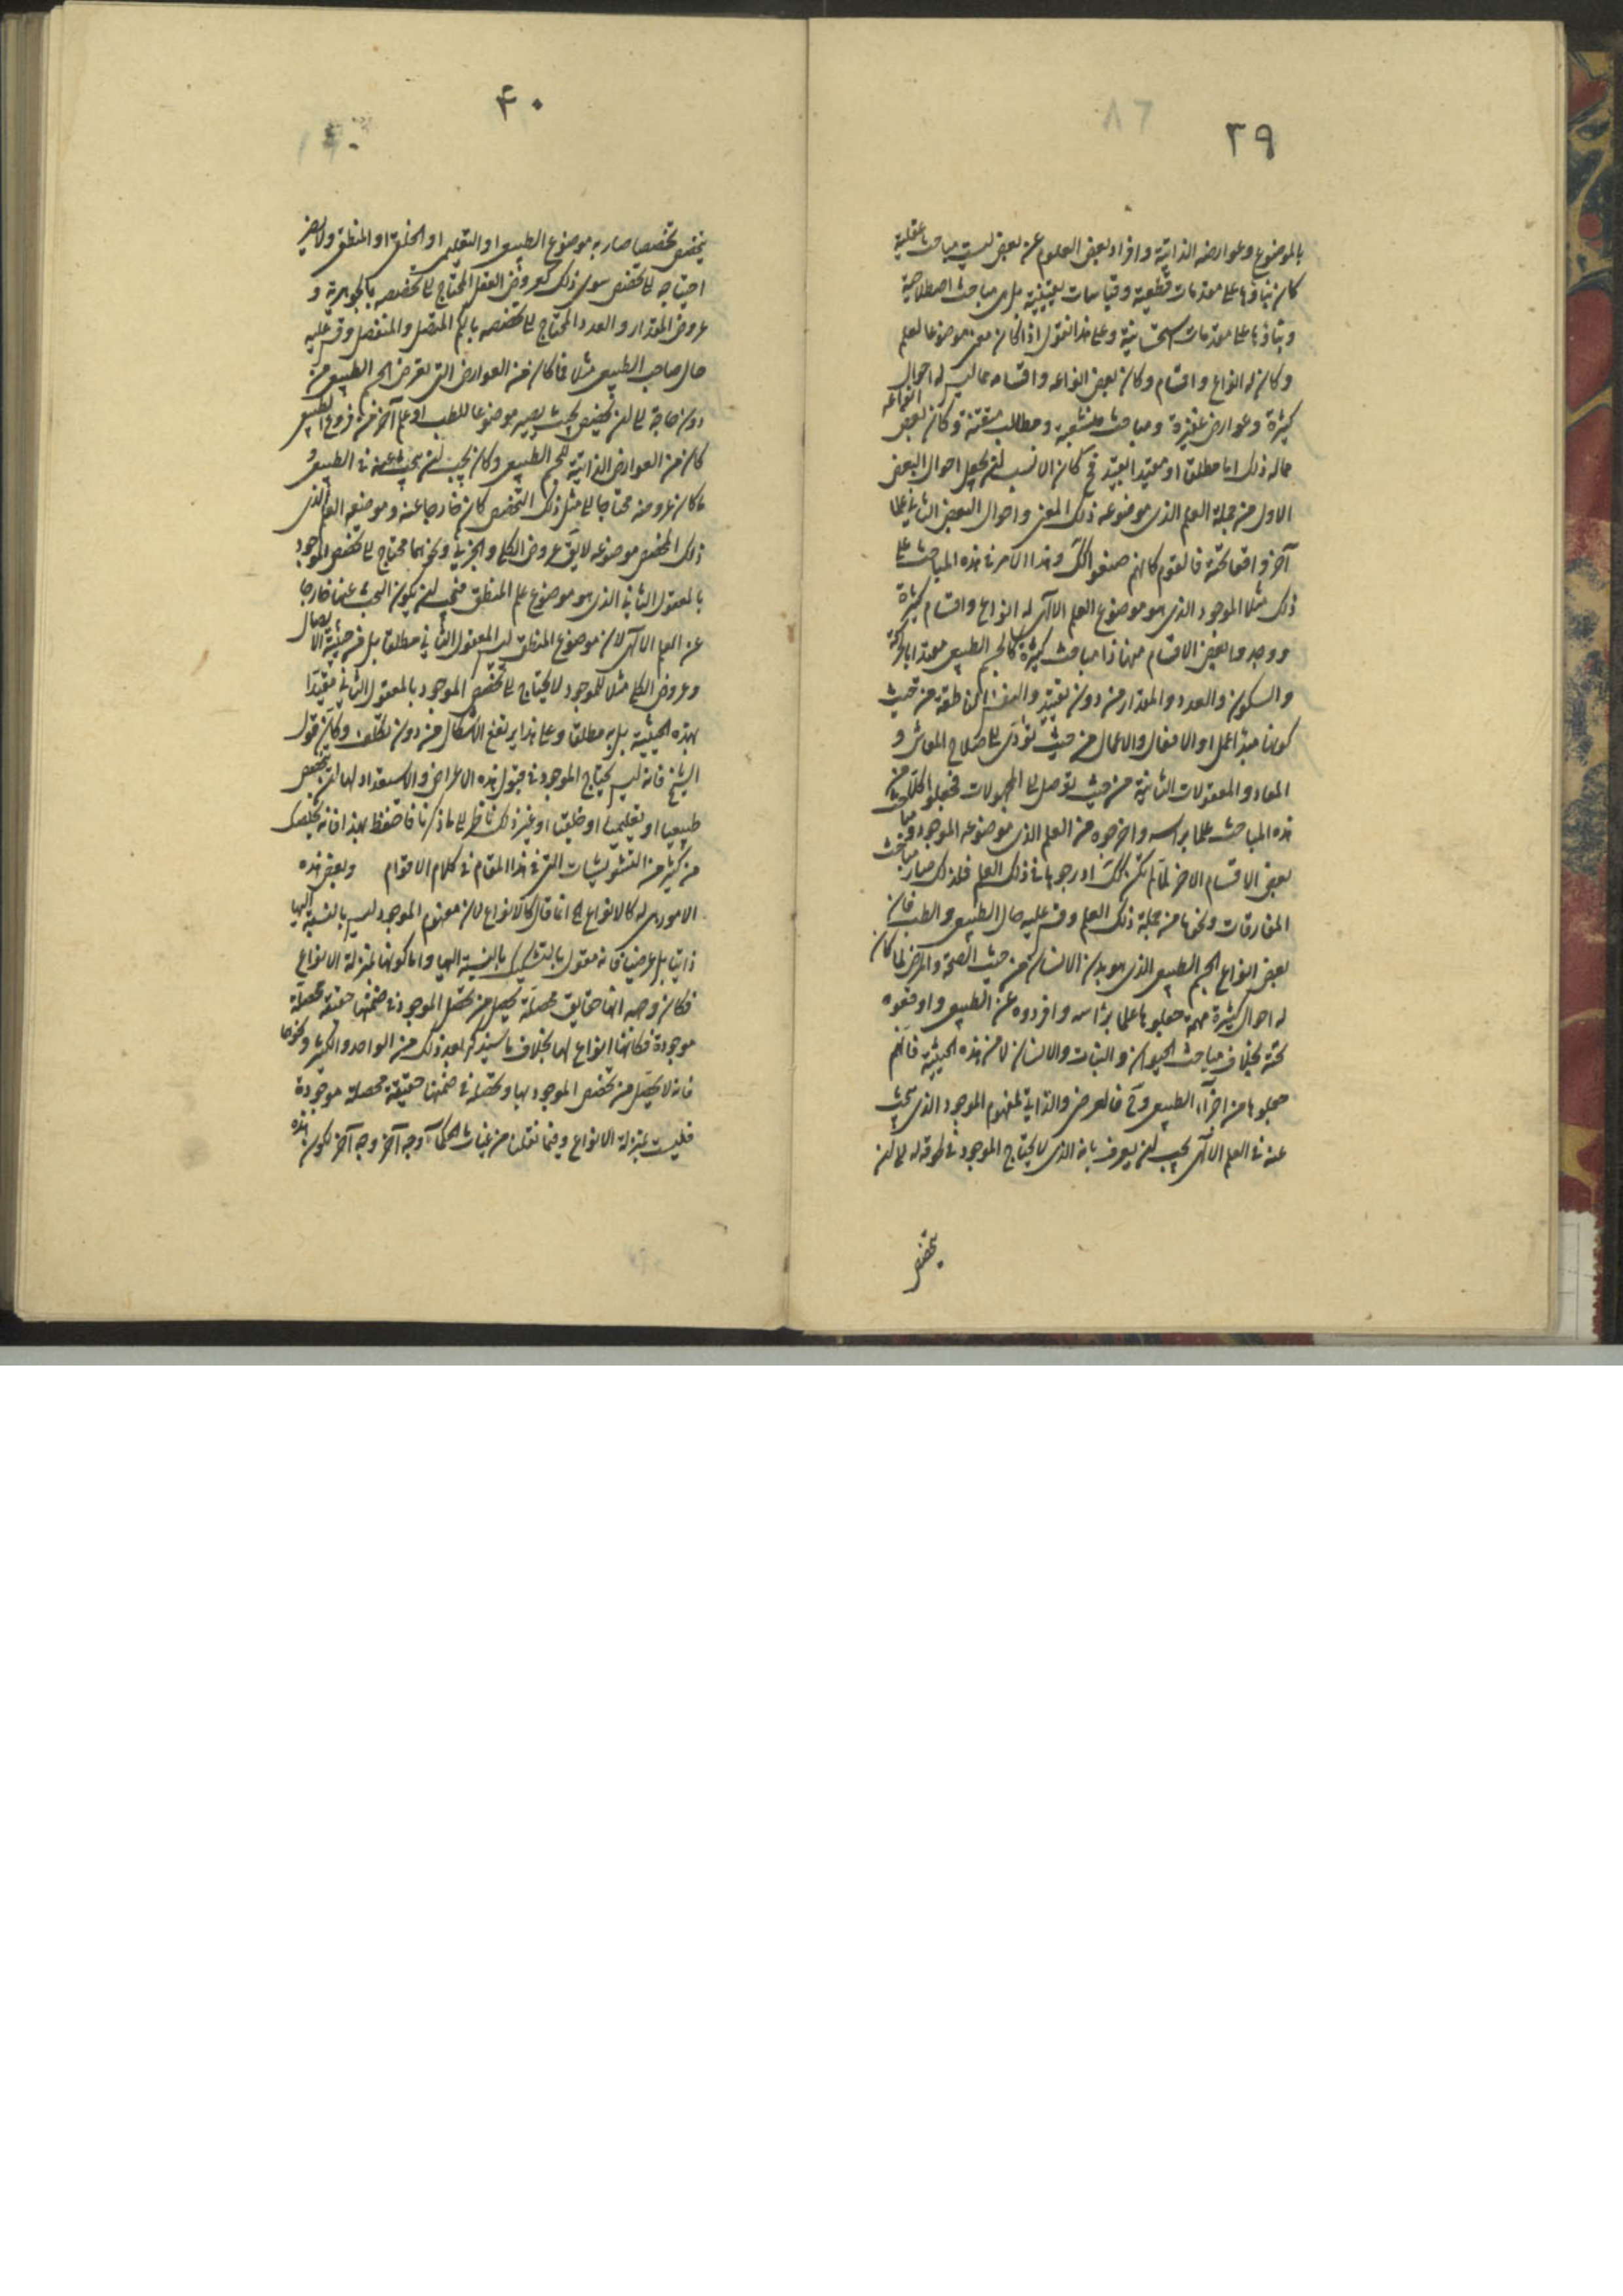 ٣٩
بالموضوع وعوارضه الذاتية وافراد بعض العلوم عن بعض ليست مباحث عقلية
كان بناؤها على مقدمات قطعية وقياسات يقينية بل هي مباحث اصطلاحية
وبناؤها على مقدمات استحسانية وعلى هذا نقول اذا كان معنى موضوعا لعلم
وكان له انواع واقسام وكان بعض انواعه واقسامه مما ليس له احوال
كثيرة وعوارض غزيرة ومباحث منشعبة ومطالب متقنة وكان بعض انواعه
مما له ذلك اما مطلقا او مقيدا بقيد فح كان الانسب ان يجعل احوال البعض
الاول من جملة العلم الذي موضوعه ذلك المعنى واحوال البعض الثاني علما
آخر واقعا تحته فالقوم كانهم صنعوا كك وهذا الامر في هذه المباحث على
ذلك مثلا الموجود الذي هو موضوع العلم الالهي له انواع واقسام كثيرة
ووجدوا بعض الاقسام منها ذا مباحث كثيرة كالجسم الطبيعي مقيدا بالحركة
والسكون والعدد والمقدار من دون تقييد والنفس الناطقة من حيث
كونها مبدأ لعمل او الافعال والاعمال من حيث تؤدي الى صلاح المعاش و
المعاد والمعقولات الثانية من حيث توصل الى المجهولات فجعلوا كلا من
هذه المباحث علما براسه واخرجوه من العلم الذي موضوعه الموجود وما
بعض الاقسام الاخر لما لم تكن كك ادرجوها في ذلك العلم فلذلك صار مباحث
المفارقات ونحوها من جملة ذلك العلم وقس عليه حال الطبيعي والطب فان
بعض انواع الجسم الطبيعي الذي هو بدن الانسان من حيث الصحة والمرض لما كان
له احوال كثيرة مهمة جعلوها علما براسه وافردوه عن الطبيعي واوقعوه
تحته بخلاف مباحث الحيوان والنبات والانسان لا من هذه الحيثية فانهم
جعلوها من اجزاء الطبيعي وح فالعرض الذاتي لمفهوم الموجود الذي يبحث
عنه في العلم الالهي يجب ان يعرف بانه الذي لا يحتاج الموجود في لحوقه له الى ان
يتخصص
٤٠
يتخصص تخصيصا صار به موضوع الطبيعي او التعليمي او الخلقي او المنطقي ولا يضر
احتياجه الى تخصص سوى ذلك كعروض العقل المحتاج الى تخصصه بالجوهرية و
عروض المقدار والعدد المحتاج الى تخصصه بالكم المتصل والمنفصل وقس عليه
حال صاحب الطبيعي مثلا فما كان من العوارض التي تعرض الجسم الطبيعي من
دون حاجة الى ان يتخصص بحيث يصير موضوعا للطب او علم آخر من فروع الطبيعي
كان من العوارض الذاتية للجسم الطبيعي وكان يجب ان يبحث عنه في الطبيعي و
ما كان عروضه محتاجا الى مثل ذلك التخصص كان خارجا عنه وموضعه العلم الذي
ذلك المخصص موضوعه لا يق عروض الكلي والجزئي ونحوهما محتاج الى تخصص الموجود
بالمعقول الثاني الذي هو موضوع علم المنطق فيجب ان يكون البحث عنها خارجا
عن العلم الالهي لان موضوع المنطق ليس المعقول الثاني مطلقا بل من حيثية الايصال
وعروض الكلي مثلا للموجود لا يحتاج الى تخصص الموجود بالمعقول الثاني مقيدا
بهذه الحيثية بل به مطلقا وعلى هذا يرتفع الاشكال من دون تكلف وكان قول
الشيخ فانه ليس يحتاج الموجود في قبول هذه الاعراض والاستعداد لها الى ان يتخصص
طبيعيا او تعليميا او خلقيا او غير ذلك ناظر الى ما ذكرنا فاحتفظ بهذا فانه يخلصك
من كثير من التشويشات التي في هذا المقام في كلام الاقوام وبعض هذه
الامور هي له كالانواع الخ انما قال كالانواع لان مفهوم الموجود ليس بالنسبة اليها
ذاتيا بل عرضيا فانه مقول بالتشكيك بالنسبة اليها واما كونها بمنزلة الانواع
فكان وجهه انها حقايق محصلة يحصل من تحصل الموجود في ضمنها حقيقة محصلة
موجودة فكانها انواع لها بخلاف ما سيذكر بعد ذلك من الواحد والكثير ونحوهما
فانه لا يحصل من تخصص الموجود بها وتحصله في ضمنها حقيقة محصلة موجودة
فليست بمنزلة الانواع وفيما نقلنا من غياث الحكماء وجه آخر وجه آخر لكون هذه